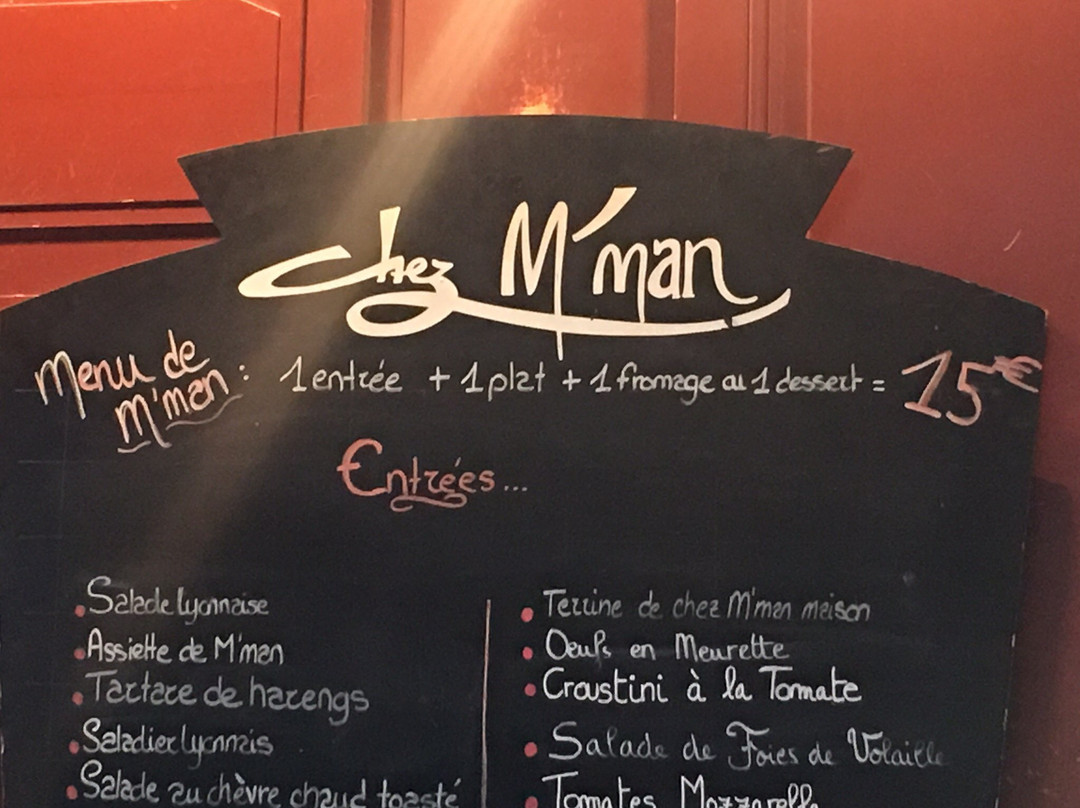 chez M'man
Menu de
M'man :
1 entrée + 1 plat + 1 fromage au 1 dessert = 15€
Entrées...
• Salade lyonnaise
• Assiette de M'man
• Tartare de harengs
• Saladier lyonnais
• Salade au chèvre chaud toasté
• Terrine de chez M'man maison
• Oeufs en Meurette
• Croustini à la Tomate
• Salade de Foies de Volaille
• Tomates Mozzarella